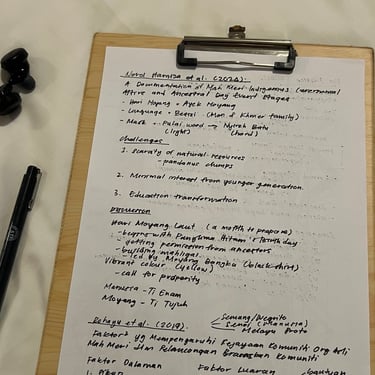 Nurul Harniza et al. (2020):
A Documentation of Mah Meri Indigenous Ceremonial
Attire and Ancestral Day Event Stages
- Hari Moyang = Ayek Moyang
- Language = Besisi (Mon & Khmer family)
- Mask → Pulai wood → Nyireh Batu
(light) (hard)
Challenges
1. Scarcity of natural resources
- pandanus clumps
2. Minimal interest from younger generation
3. Education transformation
Discussion
Hari Moyang Laut (a month to prepare)
- begins with Panglima Hitam's
- getting permission from ancestors
- building
- led by Moyang Bangka (black shirt)
Vibrant colour (yellow)
- call for prosperity
Manusia - Ti Enam
Moyang - Ti Tujuh
Semang/Negrito
Senoi
Melayu Proto
et al. (2019)
Faktor² yg Mempengaruhi Kejayaan Komuniti Org Asli
Mah Meri dlm Pelancongan Berasaskan Komuniti
Faktor Dalaman Faktor Luaran
1.